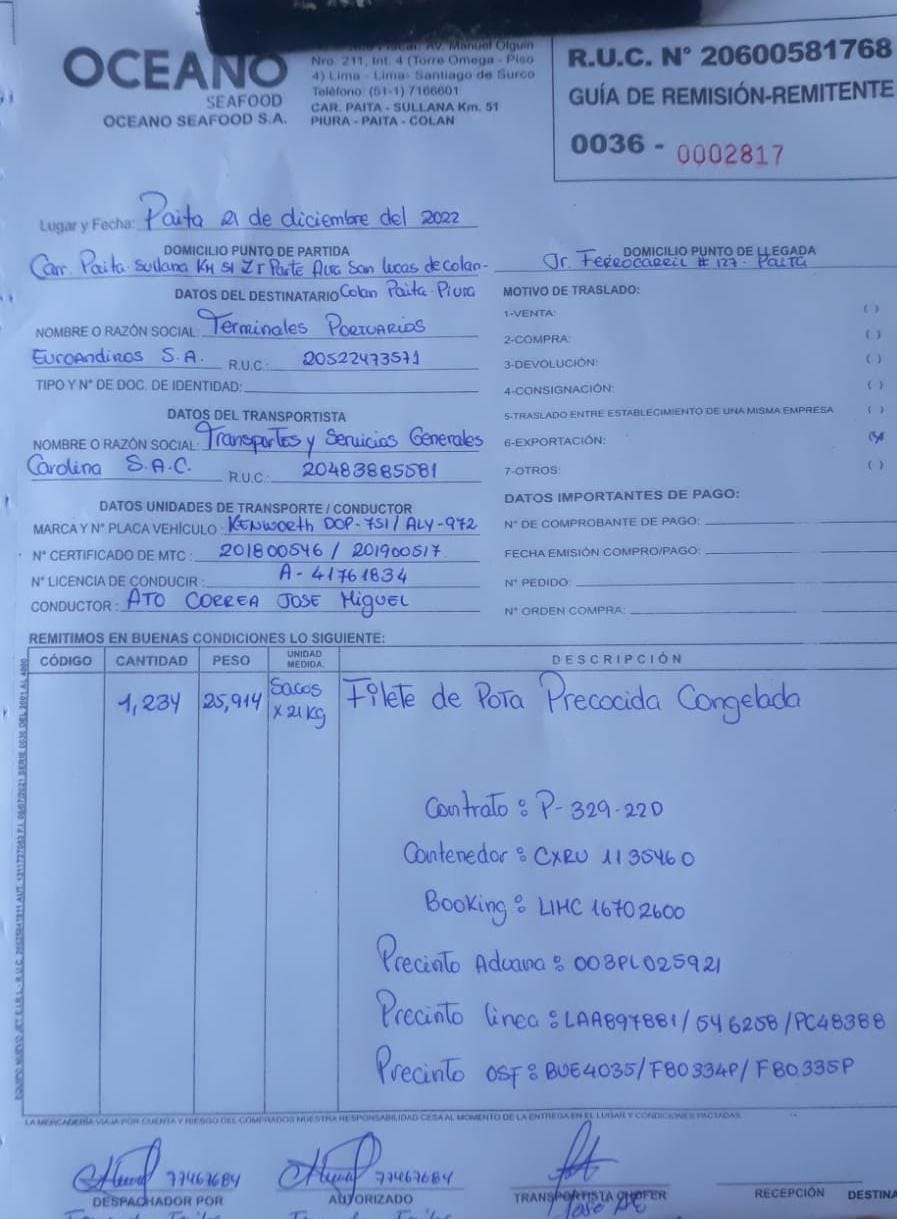 OCEANO
SEAFOOD
OCEANO SEAFOOD S.A.
Fiscal: AV. Manuel Olguin
Nro. 211, Int. 4 (Torre Omega - Piso
4) Lima - Lima- Santiago de Surco
Teléfono: (51-1) 7166601
CAR. PAITA - SULLANA Km. 51
PIURA - PAITA - COLAN
R.U.C. N° 20600581768
GUÍA DE REMISIÓN-REMITENTE
0036 - 0002817
Lugar y Fecha: Paita 21 de diciembre del 2022
DOMICILIO PUNTO DE PARTIDA
Carr. Paita Sullana KM 51 Z I Parte Alta San Lucas de colan-
Colan Paita-Piura
DOMICILIO PUNTO DE LLEGADA
Jr. Ferrocarril # 127- Paita
DATOS DEL DESTINATARIO
NOMBRE O RAZÓN SOCIAL: Terminales Portuarios
Euroandinos S.A. R.U.C.: 20522473571
TIPO Y N° DE DOC. DE IDENTIDAD:
DATOS DEL TRANSPORTISTA
NOMBRE O RAZÓN SOCIAL: Transportes y Servicios Generales
Carolina S.A.C. R.U.C.: 20483885581
DATOS UNIDADES DE TRANSPORTE / CONDUCTOR
MARCA Y N° PLACA VEHÍCULO: KENWORTH DOP-751/ ALY-972
N° CERTIFICADO DE MTC: 201800546 / 201900517
N° LICENCIA DE CONDUCIR: A-41761834
CONDUCTOR: ATO CORREA JOSE MIGUEL
MOTIVO DE TRASLADO:
1-VENTA: ( )
2-COMPRA: ( )
3-DEVOLUCIÓN: ( )
4-CONSIGNACIÓN: ( )
5-TRASLADO ENTRE ESTABLECIMIENTO DE UNA MISMA EMPRESA ( )
6-EXPORTACIÓN: (X)
7-OTROS: ( )
DATOS IMPORTANTES DE PAGO:
N° DE COMPROBANTE DE PAGO:
FECHA EMISIÓN COMPRO/PAGO:
N° PEDIDO:
N° ORDEN COMPRA:
REMITIMOS EN BUENAS CONDICIONES LO SIGUIENTE:
CÓDIGO CANTIDAD PESO UNIDAD MEDIDA. DESCRIPCIÓN
1,234 25,914 Sacos x 21 Kg Filete de Pota Precocida Congelada
Contrato: P-329-22D
Contenedor: CXRU 1135460
Booking: LIHC 16702600
Precinto Aduana: 003PL025921
Precinto linea: LAA897881/546258/PC48388
Precinto OSF: BUE4035/F80334P/F80335P
LA MERCADERÍA VIAJA POR CUENTA Y RIESGO DEL COMPRADOS NUESTRA RESPONSABILIDAD CESA AL MOMENTO DE LA ENTREGA EN EL LUGAR Y CONDICIONES PACTADAS.
77467684
DESPACHADOR POR
77467684
AUTORIZADO
TRANSPORTISTA CHOFER
RECEPCIÓN DESTINA